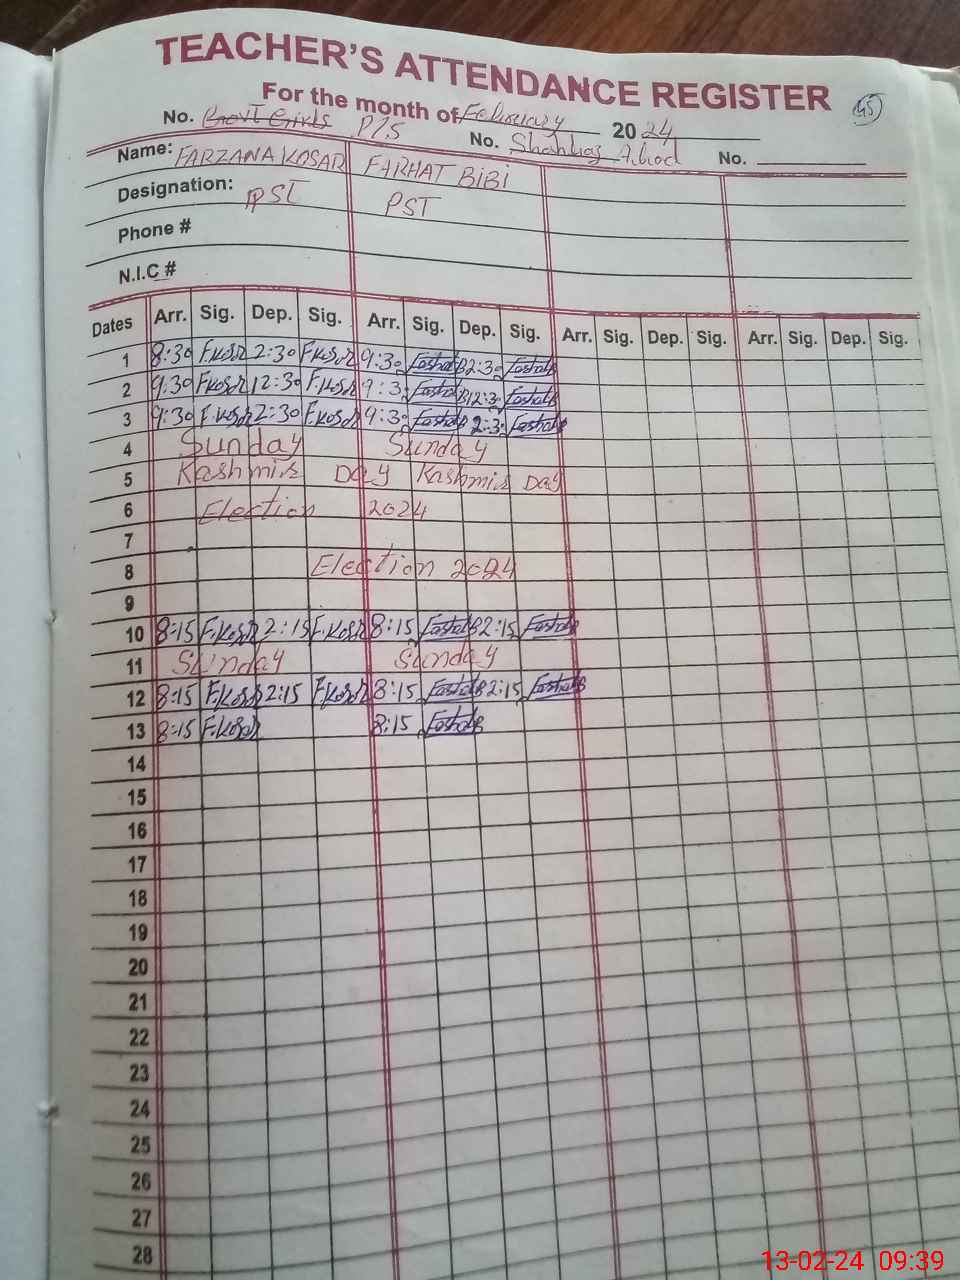 TEACHER'S ATTENDANCE REGISTER
For the month of February 2024 45
No. Govt Girls P/S No. Shahbaz Abad No.
Name: FARZANA KOSAR FARHAT BIBI
Designation: PST PST
Phone #
N.I.C #
Dates Arr. Sig. Dep. Sig. Arr. Sig. Dep. Sig. Arr. Sig. Dep. Sig. Arr. Sig. Dep. Sig.
1 8:30 F.Kosar 2:30 F.Kosar 9:30 2:30
2 9:30 F.Kosar 12:30 F.Kosar 9:30 12:30
3 9:30 F.Kosar 2:30 F.Kosar 9:30 2:30
4 Sunday Sunday
5 Kashmir Day Kashmir Day
6 Election 2024
7
8 Election 2024
9
10 8:15 F.Kosar 2:15 F.Kosar 8:15 2:15
11 Sunday Sunday
12 8:15 F.Kosar 2:15 F.Kosar 8:15 2:15
13 8:15 F.Kosar 8:15
14
15
16
17
18
19
20
21
22
23
24
25
26
27
28
13-02-24 09:39